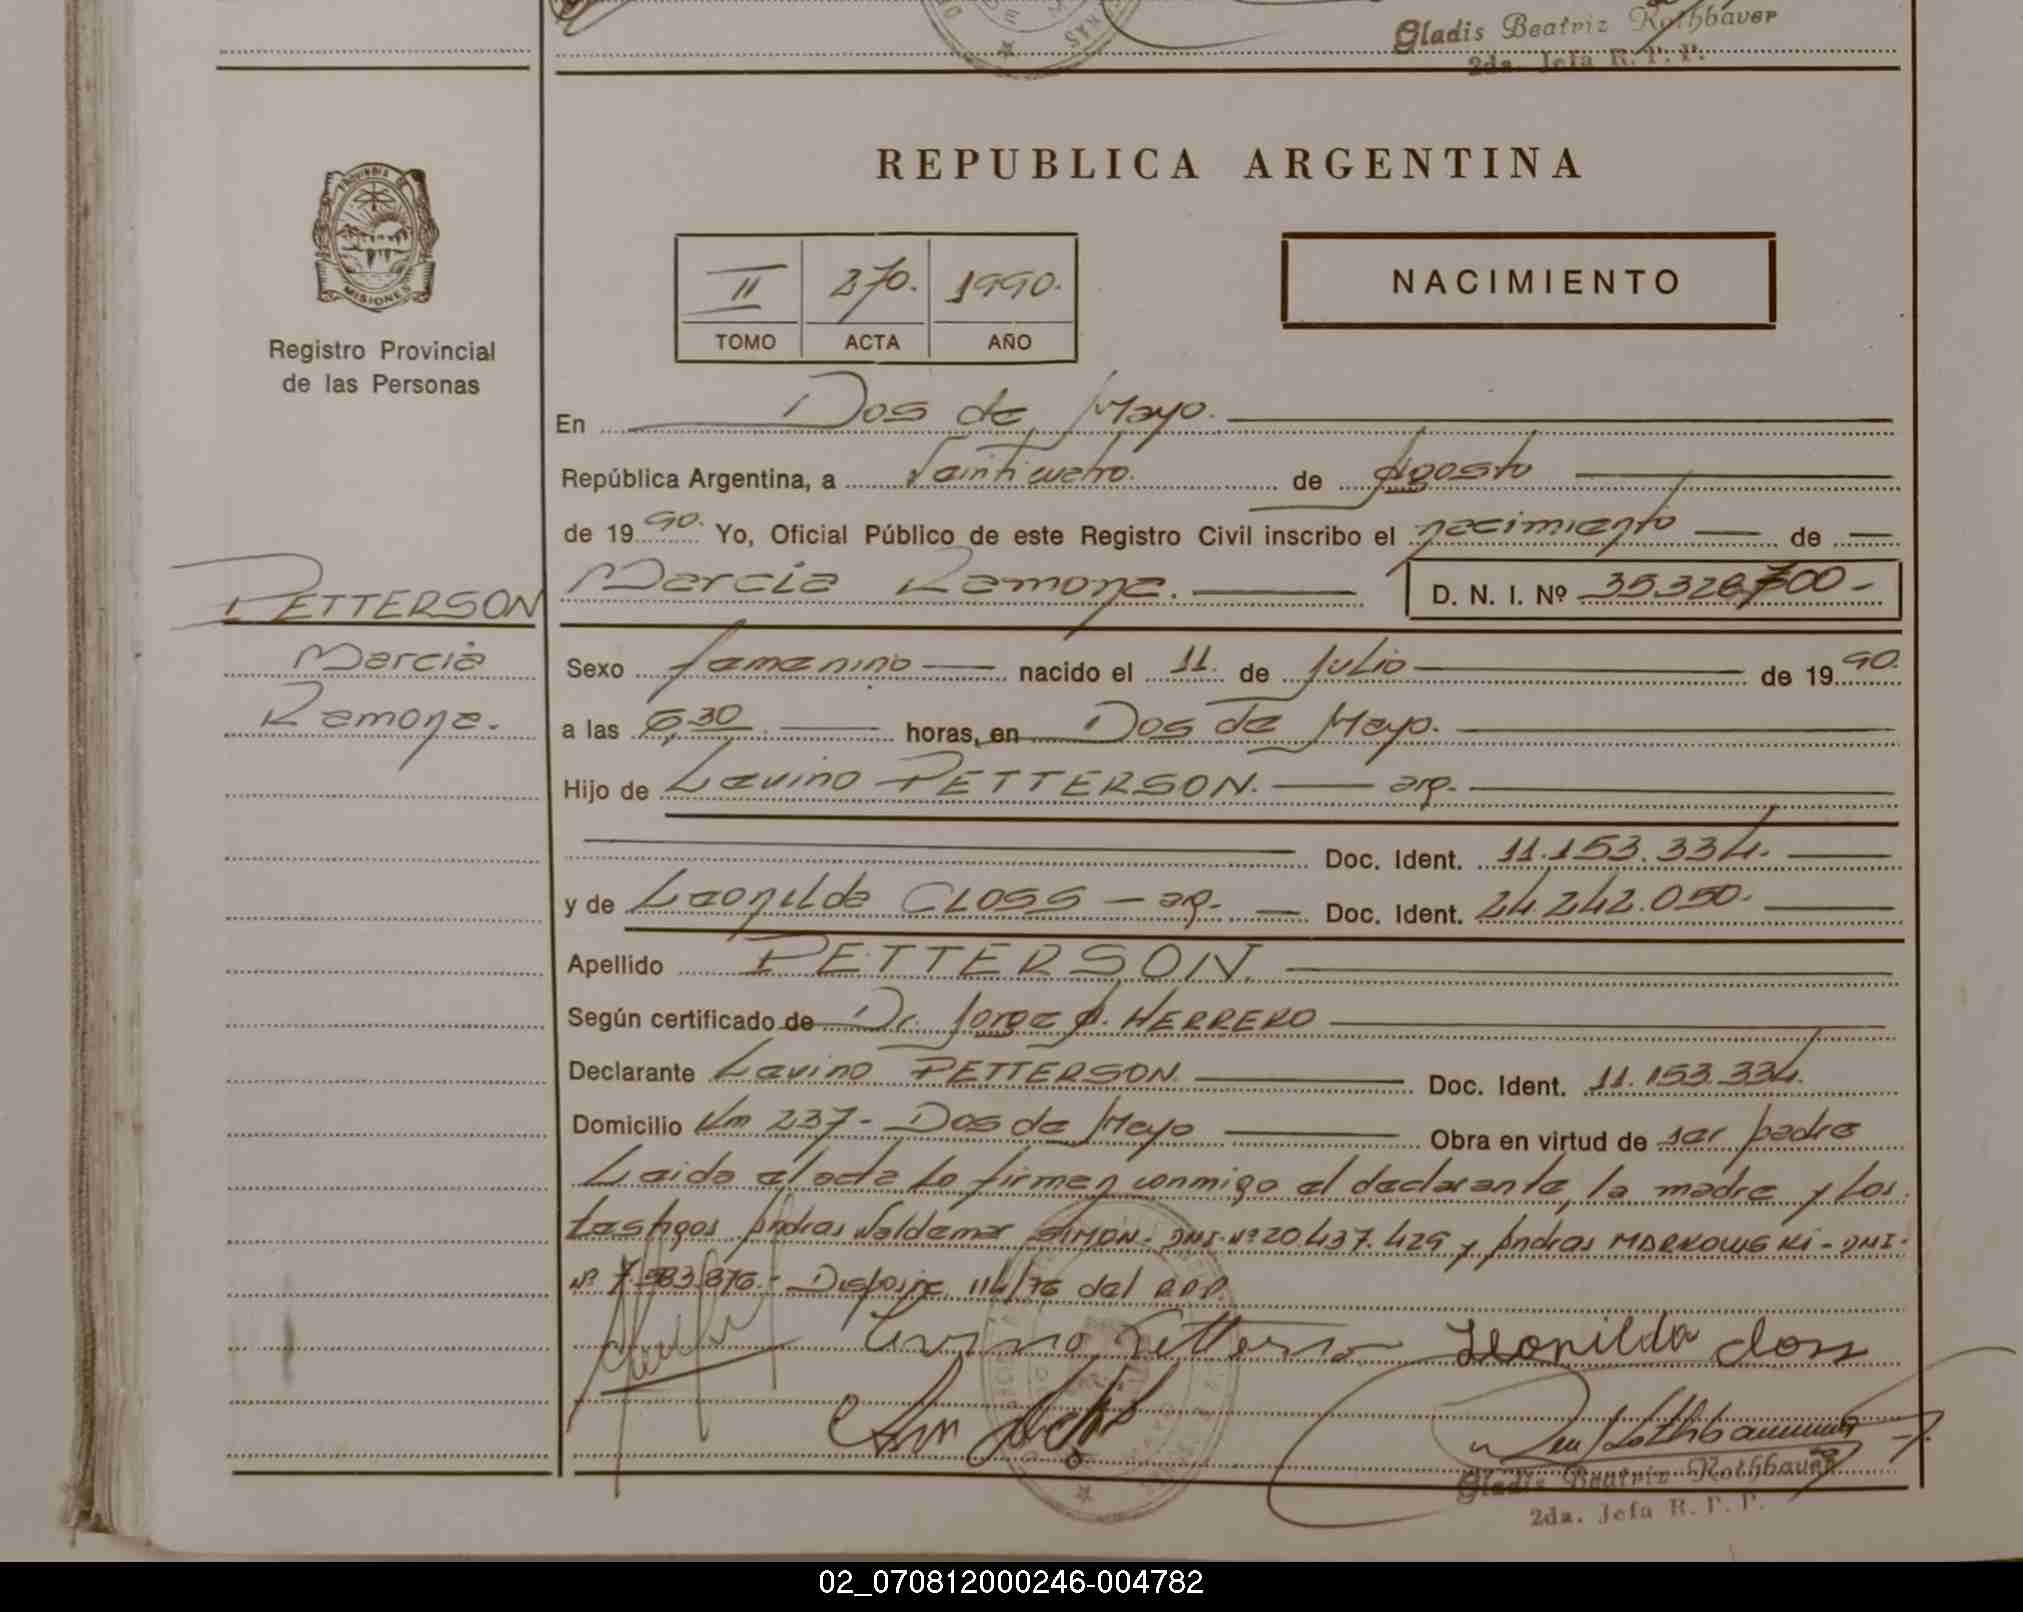 Gladis Beatriz Rothbauer
2da. Jefa R. P. P.
PROVINCIA DE
MISIONES
Registro Provincial
de las Personas
PETTERSON
Marcia
Ramona.
REPUBLICA ARGENTINA
II 270. 1990.
TOMO ACTA AÑO
NACIMIENTO
En Dos de Mayo.
República Argentina, a Veinticuatro. de Agosto
de 1990. Yo, Oficial Público de este Registro Civil inscribo el nacimiento de
Marcia Ramona. D. N. I. Nº 35.328.700-
Sexo femenino nacido el 11. de Julio de 1990.
a las 6,30 horas, en Dos de Mayo.
Hijo de Lavino PETTERSON. arg.
Doc. Ident. 11.153.334.
y de Leonilda CLOSS - arg. Doc. Ident. 24.242.050.
Apellido PETTERSON.
Según certificado de Dr. Jorge A. HERRERO
Declarante Lavino PETTERSON. Doc. Ident. 11.153.334.
Domicilio Km 237- Dos de Mayo Obra en virtud de ser padre
Leida el acta la firman conmigo el declarante, la madre y los
testigos Andres Valdemar SIMON- DNI- Nº 20.437.429 y Andres MARKOWSKI - DNI-
Nº 7.583.876.- 114/76 del R.P.P.
Leonilda Closs
Gladis Beatriz Rothbauer
2da. Jefa R. P. P.
02_070812000246-004782